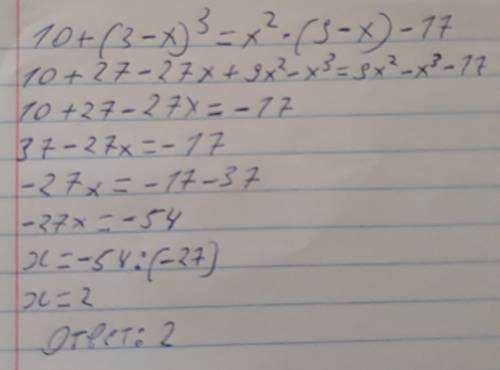 10+(3-x)³=x²·(9-x)-17
10+27-27x+9x²-x³=9x²-x³-17
10+27-27x=-17
37-27x=-17
-27x=-17-37
-27x=-54
x=-54:(-27)
x=2
Ответ: 2